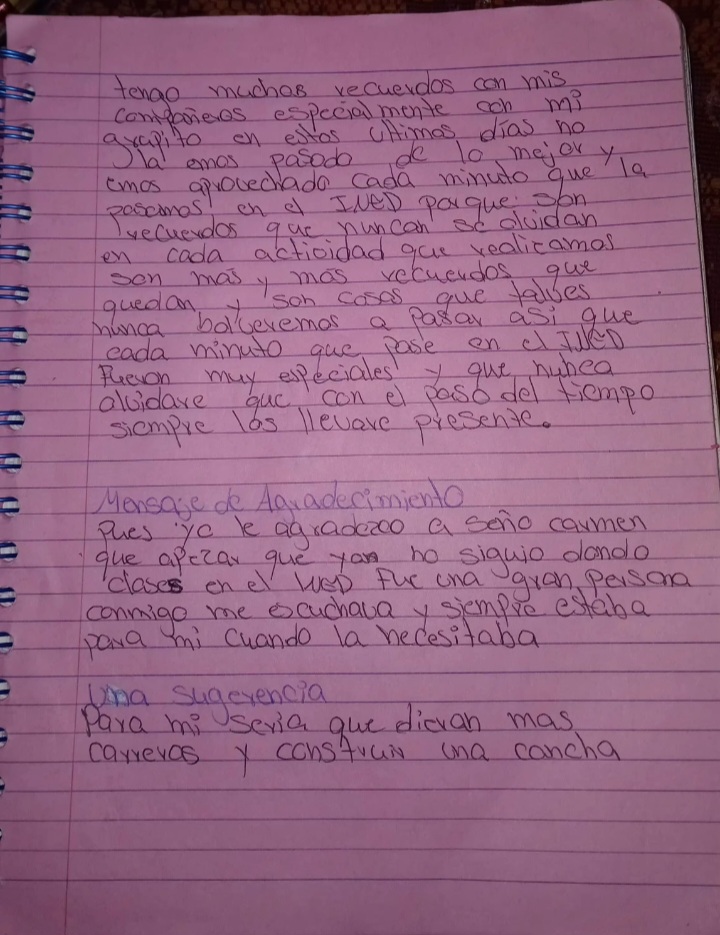 tengo muchos recuerdos con mis
compañeros especialmente con mi
grupito en estos ultimos días no
la emos pasado de lo mejor y
emos aprovechado cada minuto que la
pasamos en el INED porque son
recuerdos que nuncan se olvidan
en cada actividad que realicamos
son mas y mas recuerdos que
quedan y son cosas que talves
nunca bolveremos a pasar asi que
cada minuto que pase en el INED
Fueron muy especiales y que nunca
olvidare que con el paso del tiempo
siempre los llevare presente.
Mensaje de Agradecimiento
pues yo le agradezco a seño carmen
que apezar que yan no siguio dando
clases en el INED Fue una gran persona
conmigo me escuchava y siempre estaba
para mi cuando la necesitaba
Una sugerencia
Para mi seria que dieran mas
carreras y construir una cancha